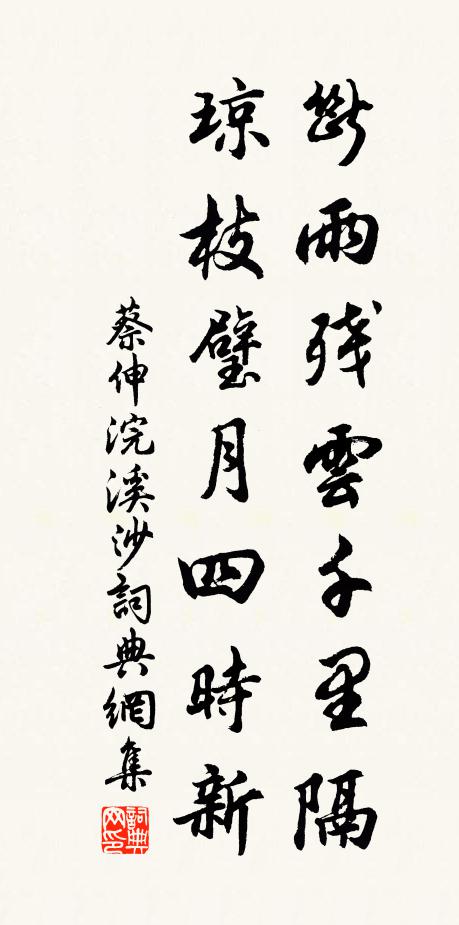 斷雨残雲千里隔
琼枝璧月四時新
蔡伸浣溪沙詞典網集
詞典网印